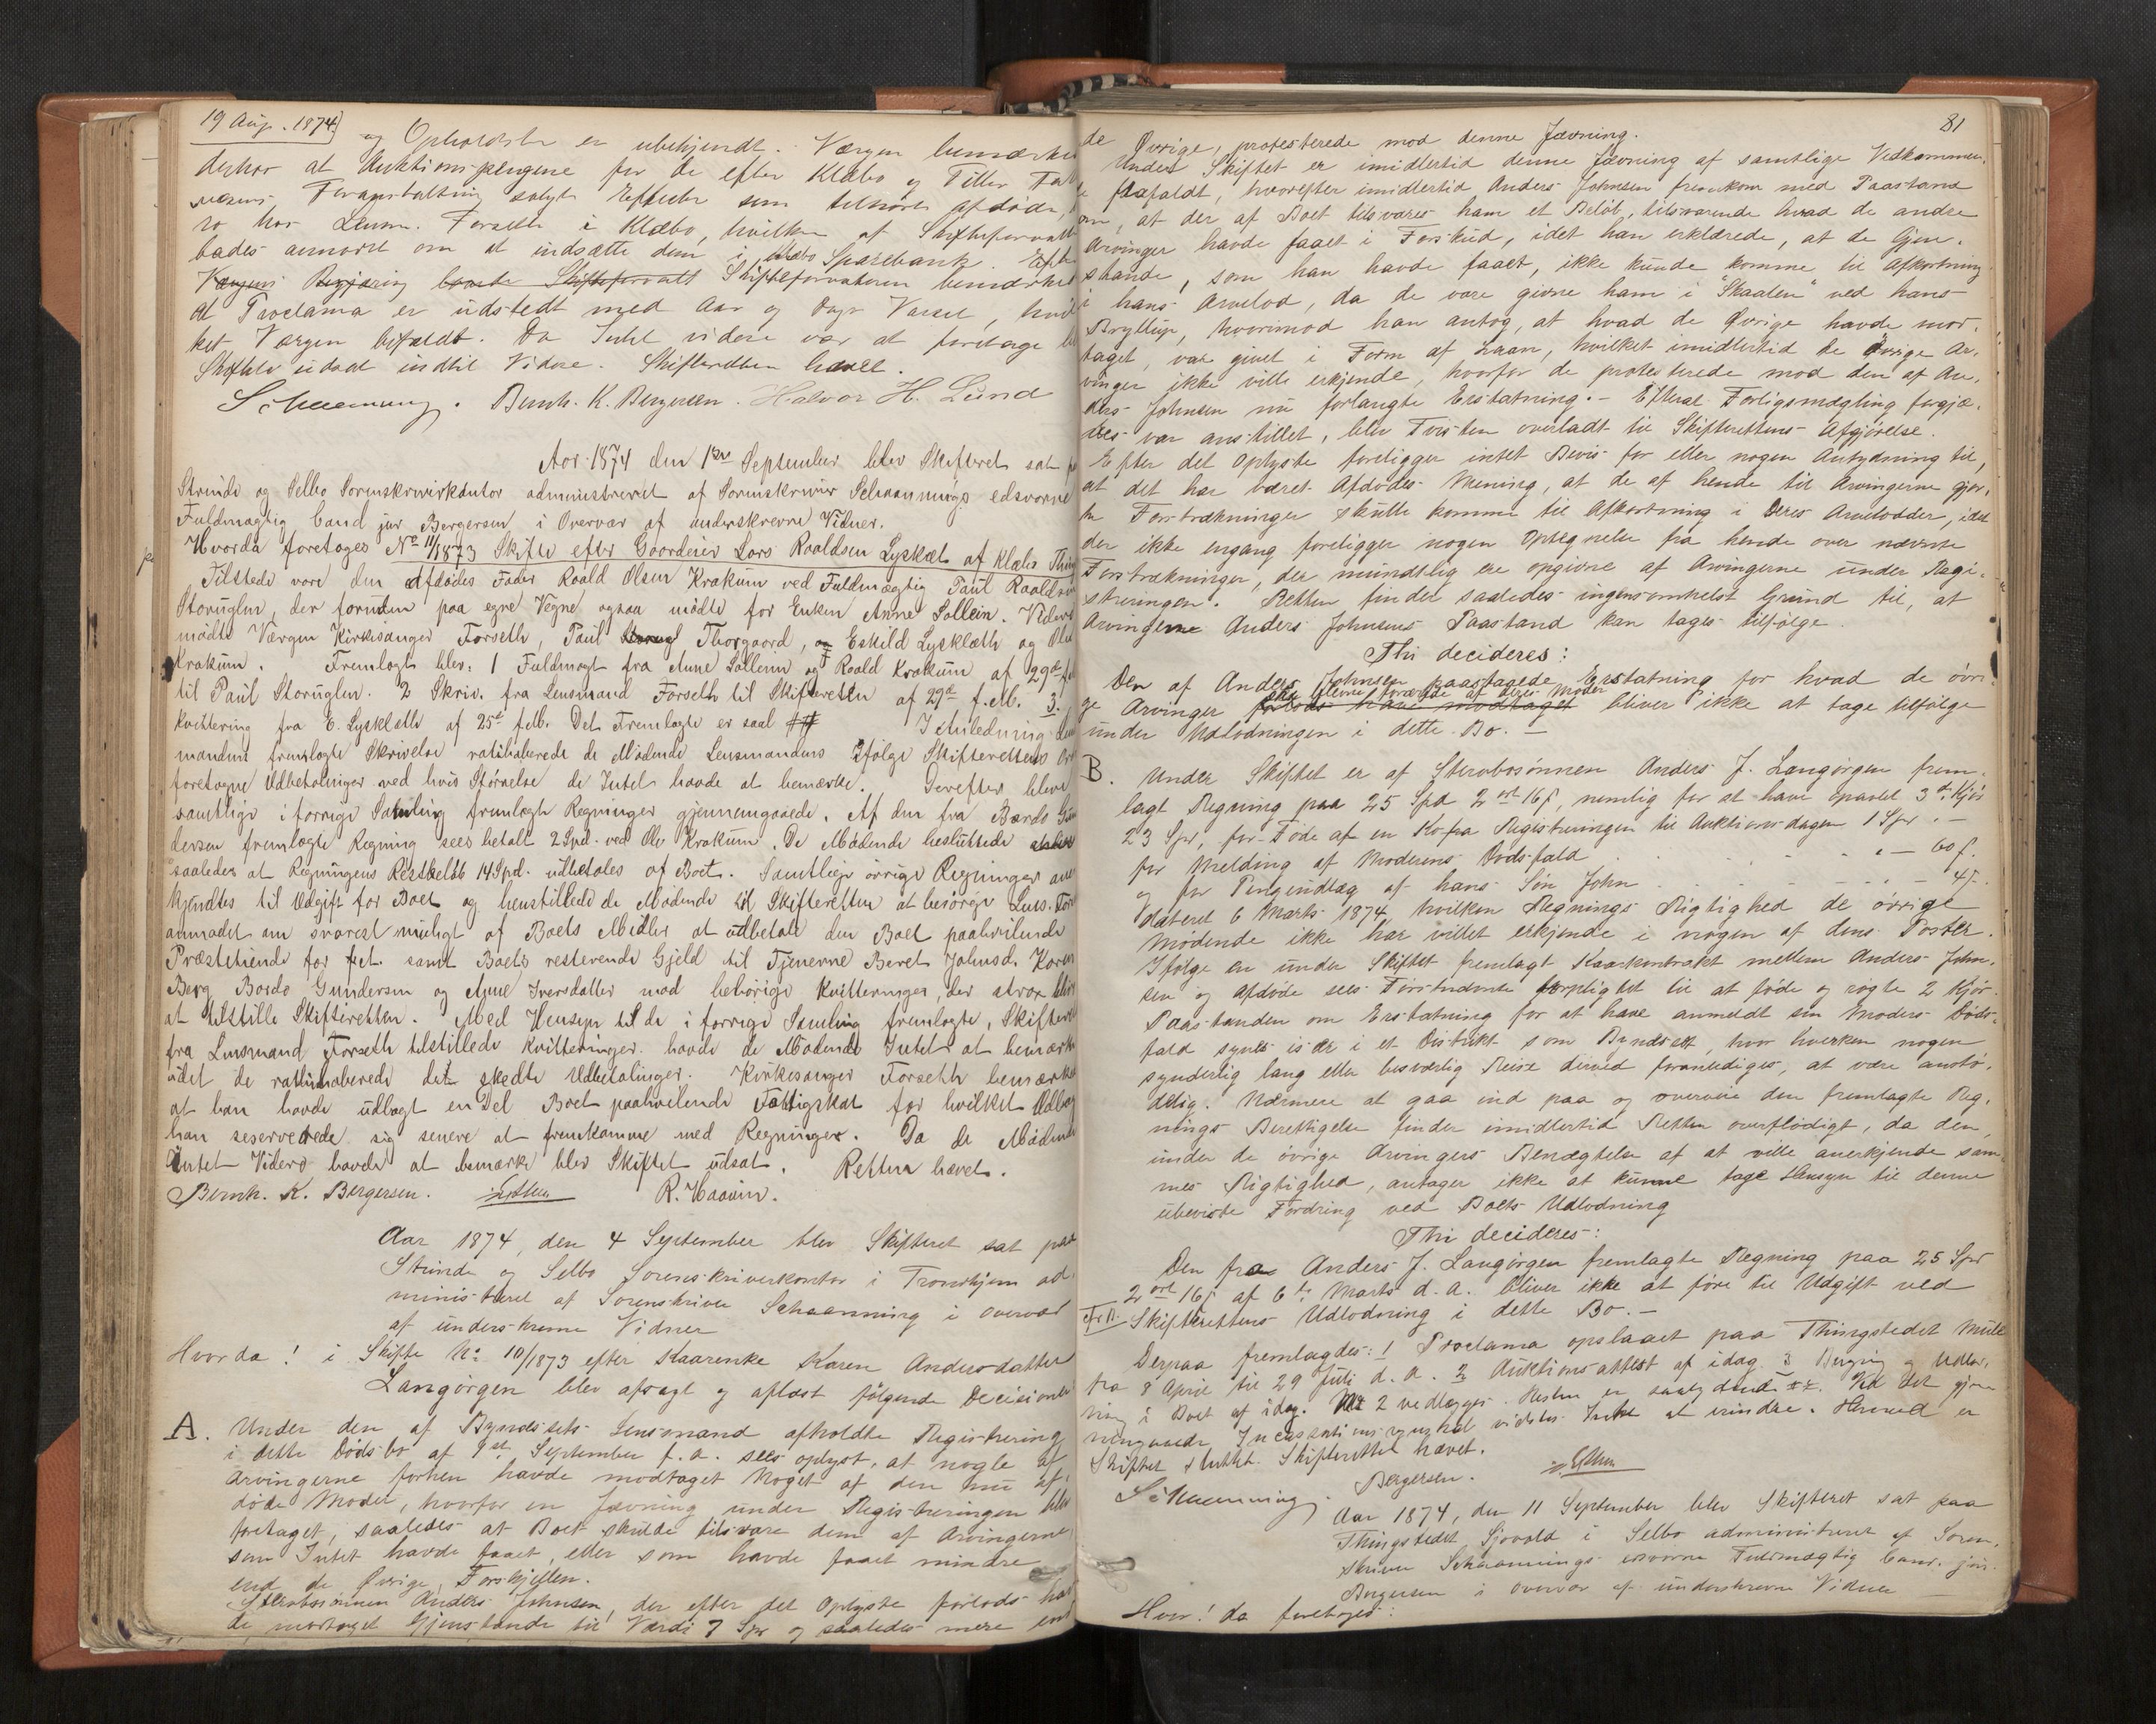 19 Aug. 1874
og Opholdster er ubekjendt. Værgen bemærke
derhos at Auktionspengene for de efter Klæbo og Tiller Fa
væsens Foranstaltning solgte Effecter som tilhørte afdøde,
ro hos Lensm. Forseth i Klæbo, hvilken af Skifteforvalt
bades anmodet om at indsætte dem i Klæbo Sparebank. Efter
Værgens Begjæring Skifteforvalt Skifteforvalteren bemærket
at Proclama er udstedt med Aar og Dags Varsel, hvil
ket Værgen bifaldt. Da Intet videre var at foretage bl
Skiftet udsat indtil Videre. Skifteretten hævet.
Schaanning. Bernh. K. Bergersen. Halvor H. Lund
Aar 1874 den 1ste September blev Skifteret sat pa
Strinde og Selbo Sorenskriverkontor administreret af Sorenskriver Schaannings edsvorne
Fuldmægtig Cand jur Bergersen i Overvær af underskrevne Vidner.
Hvorda foretoges No 11/1873 Skifte efter Gaardeier Lars Roaldsen Lysklæt af Klæbo Thin
Tilstede vare den Afdødes Fader Roald Olsen Krakum ved Fuldmægtig Paul Roaldsen
Storuglen, der foruden paa egne Vegne ogsaa mødte for Enken Anne Sollein. Videre
mødte Værgen Kirkesanger Forseth, Paul Thorgaard, og Eskild Lysklæth og Ole
Krakum. Fremlagt blev: 1 Fuldmagt fra Anne Sollein og Roald Krakum af 29de f
til Paul Storuglen. 2 Skriv. fra Lensmand Forseth til Skifteretten af 29de f.M. 3.
Kvittering fra E. Lysklæth af 25de f.M. Det Fremlagte er saal I Anledning
mandens fremlagte Skrivelse ratihaberede de Mødende Lensmandens ifølge Skifterettens Or
foretagne Udbetalinger ved hvis Størrelse de Intet havde at bemærke. Derefter bleve
samtlige i forrige Samling fremlagte Regninger gjennemgaaede. Af den fra Bardo Gun
dersen fremlagte Regning sees betalt 2 Spd. ved Ole Krakum. De Mødende besluttede
saaledes at Regningens Restbeløb 14 Spd. udbetales af Boet. Samtlige øvrige Regninger aner
kjendtes til Udgift for Boet og henstillede de Mødende til Skifteretten at besørge Lens. For
anmodet om snarest muligt af Boets Midler at udbetale den Boet paahvilende
Præstetiende for f.A. samt Boets resterende Gjeld til Tjenerne Beret Johnsd. Karen
Berg Bardo Gundersen og Anne Iversdatter mod behørige Kvitteringer, der strax
at tilstille Skifteretten. Med Hensyn til de i forrige Samling fremlagte, Skifteret
fra Lensmand Forseth tilstillede Kvitteringer havde de Mødende Intet at bemærke
idet de ratihaberede det skedte Udbetalinger. Kirkesanger Forseth bemærke
at han havde udlagt en Del Boet paahvilende Fattigskat for hvilket Udlæg
han reserverede sig senere at fremkomme med Regninger. Da de Mødende
Intet Videre havde at bemærke blev Skiftet udsat. Retten hævet.
Bernh. K. Bergersen. R. Haavin.
Aar 1874, den 4 September blev Skifteret sat paa
Strinde og Selbo Sorenskriverkontor i Tronhjem ad
ministreret af Sorenskriver Schaanning i Overvær
af underskrevne Vidner
Hvorda! i Skifte No 10/1873 efter Kaarenke Karen Andersdatter
Langørgen blev afsagt og aflæst følgende Decisioner
A. Under den af Bynessets Lensmand afholdte Registrering
i dette Dødsbo af 1st September f.a. sees oplyst, at nogle af
Arvingerne forhen havde modtaget Noget af den nu af,
døde Moder, hvorfor en Jævning under Registreringen blev
foretaget, saaledes at Boet skulde tilsvare dem af Arvingerne
som Intet havde faaet, eller som havde faaet mindre
end de Øvrige, Forskjellen.
Sterbosønnen Anders Johnsen, der efter det Oplyste forlods hav
de modtaget Gjenstande til Værdi 7 Spd og saaledes mere end
81
de Øvrige, protesterede mod denne Jævning.
Under Skiftet er imidlertid denne Jævning af samtlige Vedkommen,
de frafaldt, hvorefter imidlertid Anders Johnsen fremkom med Paastand
om, at der af Boet tilsvares ham et Beløb, tilsvarende hvad de andre
Arvinger havde faaet i Forskud, idet han erklærede, at de Gjen,
stande, som han havde faaet, ikke kunde komme til Afkortning
i hans Arvelod, da de vare givne ham i "Skaalen" ved hans
Bryllup, hvorimod han antog, at hvad de Øvrige havde mod,
taget, var givet i Form af Laan, hvilket imidlertid de Øvrige Ar,
vinger ikke ville erkjende, hvorfor de protesterede mod den af An,
ders Johnsen nu forlangte Erstatning. - Efterat Forligsmægling forgjæ,
ves var anstillet, blev Tvisten overladt til Skifterettens Afgjørelse.
Efter det Oplyste foreligger intet Bevis for eller nogen Antydning til,
at det har været Afdødes Mening, at de af hende til Arvingerne gjor,
te Forstrækninger skulle komme til Afkortning i deres Arvelodder, idet
der ikke engang foreligger nogen Optegnelse fra hende over nævnte
Forstrækninger, der mundtlig ere opgivne af Arvingerne under Regi,
streringen. Retten finder saaledes ingensomhelst Grund til, at
Arvingerne Anders Johnsens Paastand kan tages tilfølge.
Thi decideres:
Den af Anders Johnsen paastaaede Erstatning for hvad de øvri
ere blevne forærede af deres Moder
ge Arvinger forlods have modtaget bliver ikke at tage tilfølge
under Udlodningen i dette Bo. -
B. Under Skiftet er af Sterbosønnen Anders J. Langørgen frem,
lagt Regning paa 25 Spd 2 ort 16 s, nemlig for at have opavlet 3 de Kjør
23 Spd, for Føde af en Ko fra Registreringen til Auktionsdagen 1 Spd. -
for Melding af Moderens Dødsfald . . . - 60 s.
og for Pengeindlæg af hans Søn John . . . - 4 s.
dateret 6 Marts 1874, hvilken Regnings Rigtighed de øvrige
Mødende ikke har villet erkjende i nogen af dens Poster.
Ifølge en under Skiftet fremlagt Kaarkontrakt mellem Anders John,
sen og Afdøde sees Førstnævnte forpligtet til at føde og røgte 2 Kjør.
Paastanden om Erstatning for at have anmeldt sin Moders Døds,
fald synes især i et Distrikt som Bynæsset, hvor hverken nogen
synderlig lang eller besværlig Reise derved foranlediges, at være anstø,
delig. Nærmere at gaa ind paa og overveie den fremlagte Reg,
nings Berettigelse finder imidlertid Retten overflødigt, da den,
under de øvrige Arvingers Benægtelse af at ville anerkjende sam
mes Rigtighed, antager ikke at kunne tage Hensyn til denne
ubeviste Fordring ved Boets Udlodning
Thi decideres:
Den fra Anders J. Langørgen fremlagte Regning paa 25 Spd
2 ort 16 s af 6te Marts d.A. bliver ikke at føre til Udgift ved
Skifterettens Udlodning i dette Bo. -
Derpaa fremlagdes: 1 Proclama opslaaet paa Thingstedet Mule
fra 8 April til 29 Juli d.A. 2 Auktionsattest af idag 3 Beregning og Udlod,
ning i Boet af idag. No 2 vedlægges. Resten er saalydende. Ved det gjen
nemgaaede Incassationsregnskab vidstes Intet at erindre. Hermed er
Skiftet sluttet. Skifteretten hævet.
Schaanning. Bergersen.
Aar 1874, den 11 September blev Skifteret sat paa
Thingstedet Sjøvold i Selbo administreret af Soren,
skriver Schaannings edsvorne Fuldmægtig Cand. jur.
Bergersen i Overvær af underskrevne Vidner
Hvor! da foretoges: